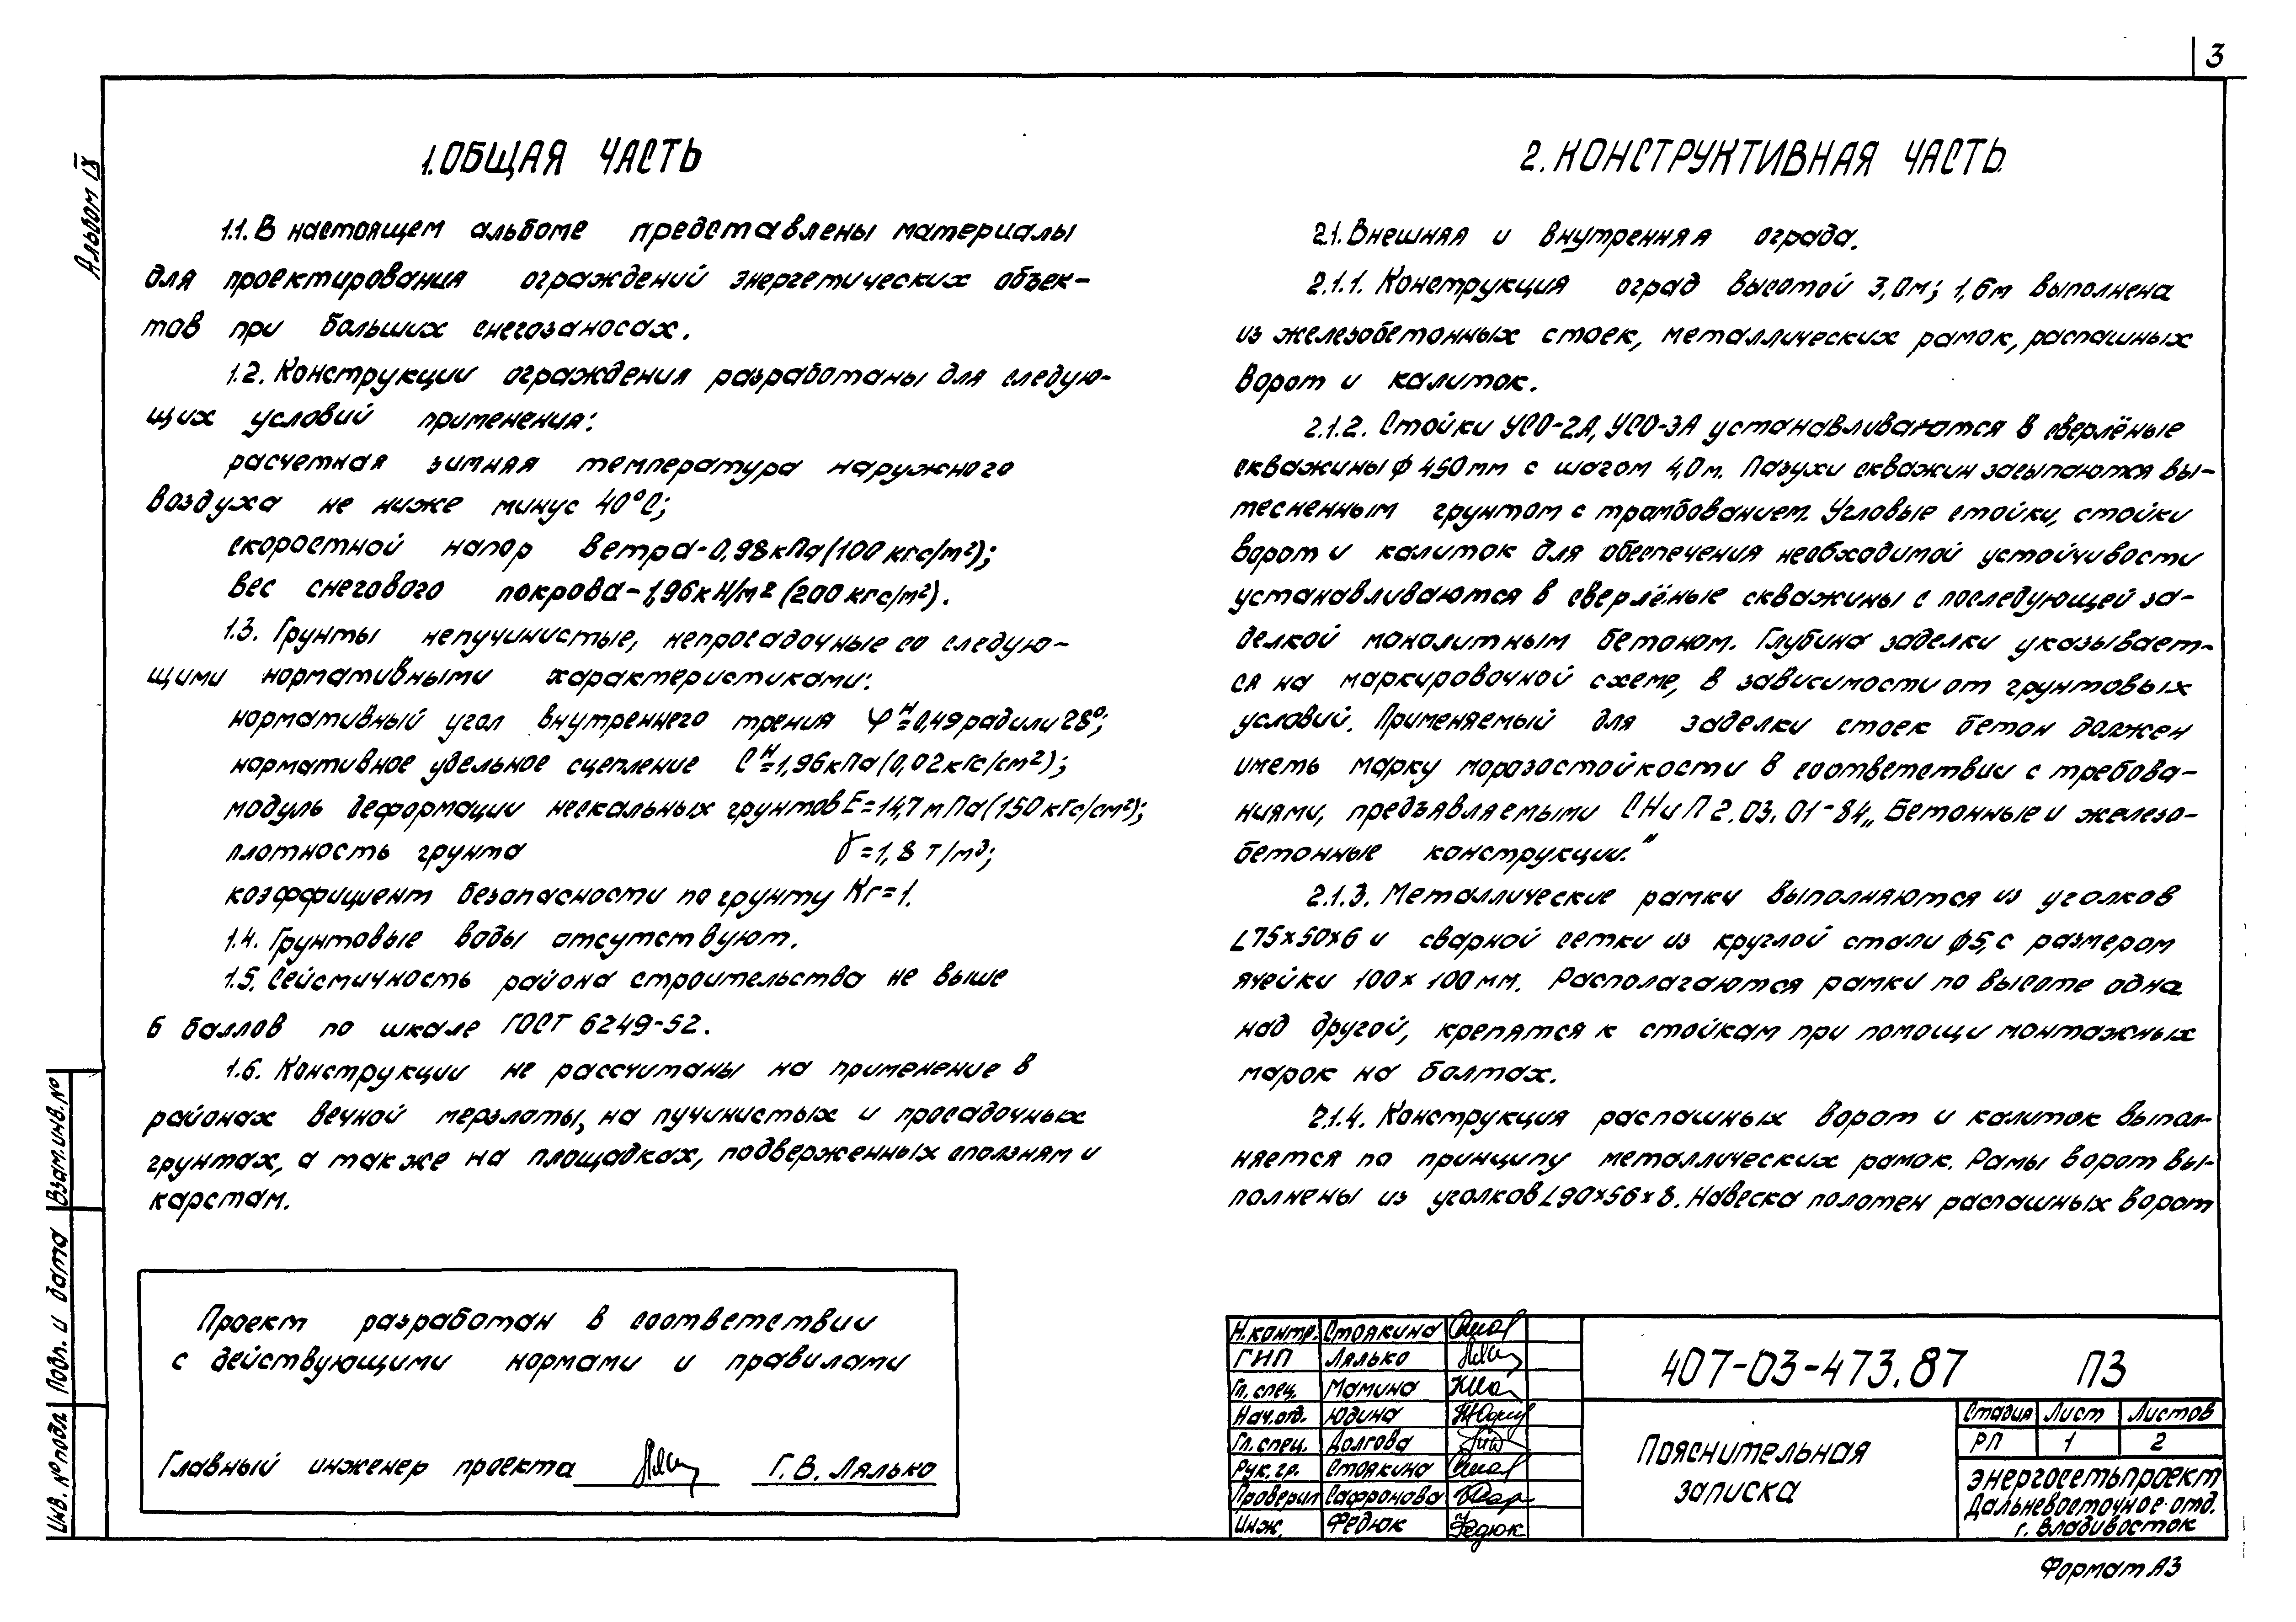 3
Альбом IX
1. ОБЩАЯ ЧАСТЬ
1.1. В настоящем альбоме представлены материалы
для проектирования ограждений энергетических объек-
тов при больших снегозаносах.
1.2. Конструкции ограждения разработаны для следую-
щих условий применения:
расчетная зимняя температура наружного
воздуха не ниже минус 40°С;
скоростной напор ветра-0,98кПа(100 кгс/м²);
вес снегового покрова-1,96кН/м² (200кгс/м²).
1.3. Грунты непучинистые, непросадочные со следую-
щими нормативными характеристиками:
нормативный угол внутреннего трения φᴴ=0,49рад или 28°;
нормативное удельное сцепление Сᴴ=1,96кПа(0,02кгс/см²);
модуль деформации нескальных грунтов Е=14,7мПа(150кгс/см²);
плотность грунта γ=1,8 т/м³;
коэффициент безопасности по грунту Кг=1.
1.4. Грунтовые воды отсутствуют.
1.5. Сейсмичность района строительства не выше
6 баллов по шкале ГОСТ 6249-52.
1.6. Конструкции не рассчитаны на применение в
районах вечной мерзлоты, на пучинистых и просадочных
грунтах, а также на площадках, подверженных оползням и
карстам.
Проект разработан в соответствии
с действующими нормами и правилами
Главный инженер проекта Г.В. Лялько
2. КОНСТРУКТИВНАЯ ЧАСТЬ
2.1. Внешняя и внутренняя ограда.
2.1.1. Конструкция оград высотой 3,0м; 1,6м выполнена
из железобетонных стоек, металлических рамок, распашных
ворот и калиток.
2.1.2. Стойки УСО-2А, УСО-3А устанавливаются в сверлёные
скважины ф 450мм с шагом 4,0м. Пазухи скважин засыпаются вы-
тесненным грунтом с трамбованием. Угловые стойки, стойки
ворот и калиток для обеспечения необходимой устойчивости
устанавливаются в сверлёные скважины с последующей за-
делкой монолитным бетоном. Глубина заделки указывает-
ся на маркировочной схеме, в зависимости от грунтовых
условий. Применяемый для заделки стоек бетон должен
иметь марку морозостойкости в соответствии с требова-
ниями, предъявляемыми СНиП 2.03.01-84 „Бетонные и железо-
бетонные конструкции."
2.1.3. Металлические рамки выполняются из уголков
∠75×50×6 и сварной сетки из круглой стали ф5, с размером
ячейки 100×100мм. Располагаются рамки по высоте одна
над другой, крепятся к стойкам при помощи монтажных
марок на болтах.
2.1.4. Конструкция распашных ворот и калиток выпол-
няется по принципу металлических рамок. Рамы ворот вы-
полнены из уголков ∠90×56×8. Навеска полотен распашных ворот
Н.контр. Стоякина
ГИП Лялько
Гл. спец. Мамина
Нач.отд. Юдина
Гл. спец. Долгова
Рук. гр. Стоякина
Проверил Сафронова
Инж. Федюк Федюк
407-03-473.87 ПЗ
Пояснительная
записка
Стадия Лист Листов
РП 1 2
Энергосетьпроект
Дальневосточное отд.
г. Владивосток
Формат А3
Инв. № подл. Подп. и дата Взам.инв.№